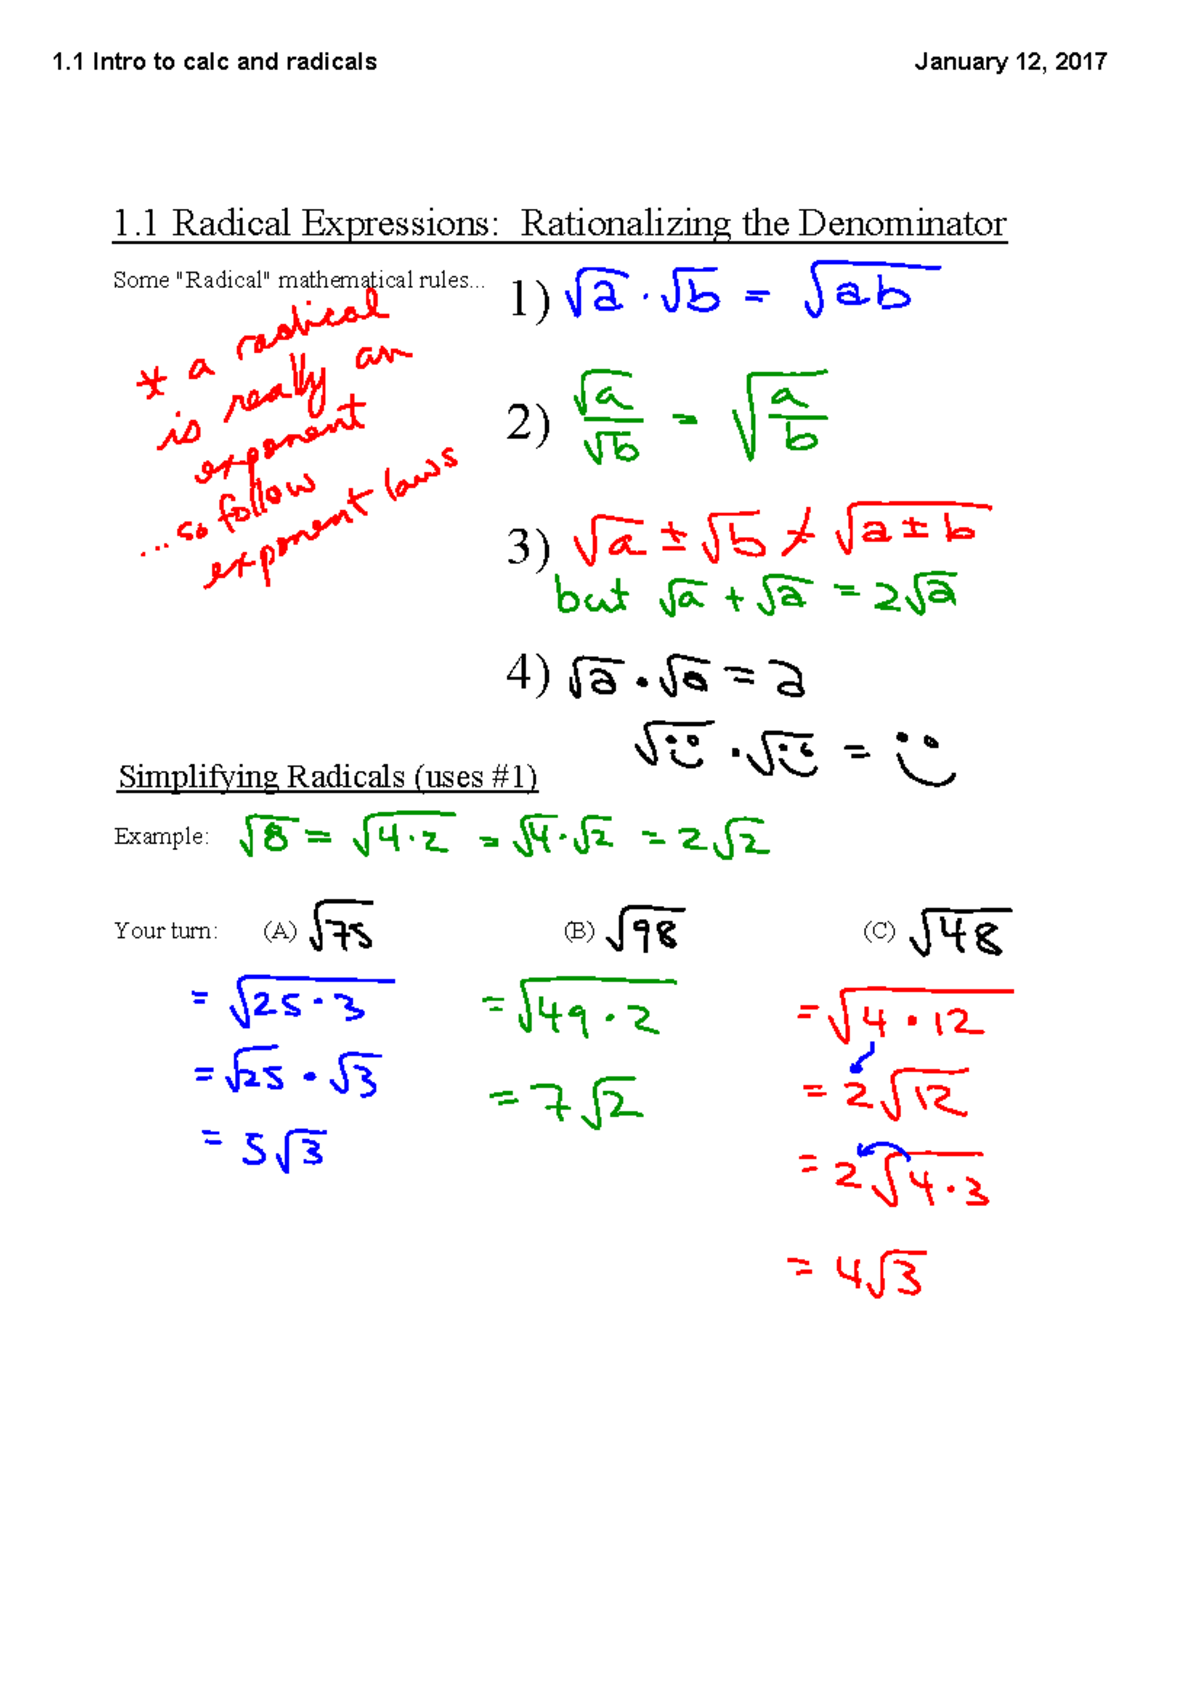 1.1 Intro to calc and radicals
January 12, 2017
1.1 Radical Expressions: Rationalizing the Denominator
Some "Radical" mathematical rules...
* a radical
is really an
exponent
...so follow
exponent laws
1) √a · √b = √(ab)
2) √a/√b = √(a/b)
3) √a ± √b ≠ √(a ± b)
but √a + √a = 2√a
4) √a · √a = a
√☺ · √☺ = ☺
Simplifying Radicals (uses #1)
Example: √8 = √(4·2) = √4 · √2 = 2√2
Your turn: (A) √75
= √(25·3)
= √25 · √3
= 5√3
(B) √98
= √(49·2)
= 7√2
(C) √48
= √(4·12)
= 2√12
= 2√(4·3)
= 4√3